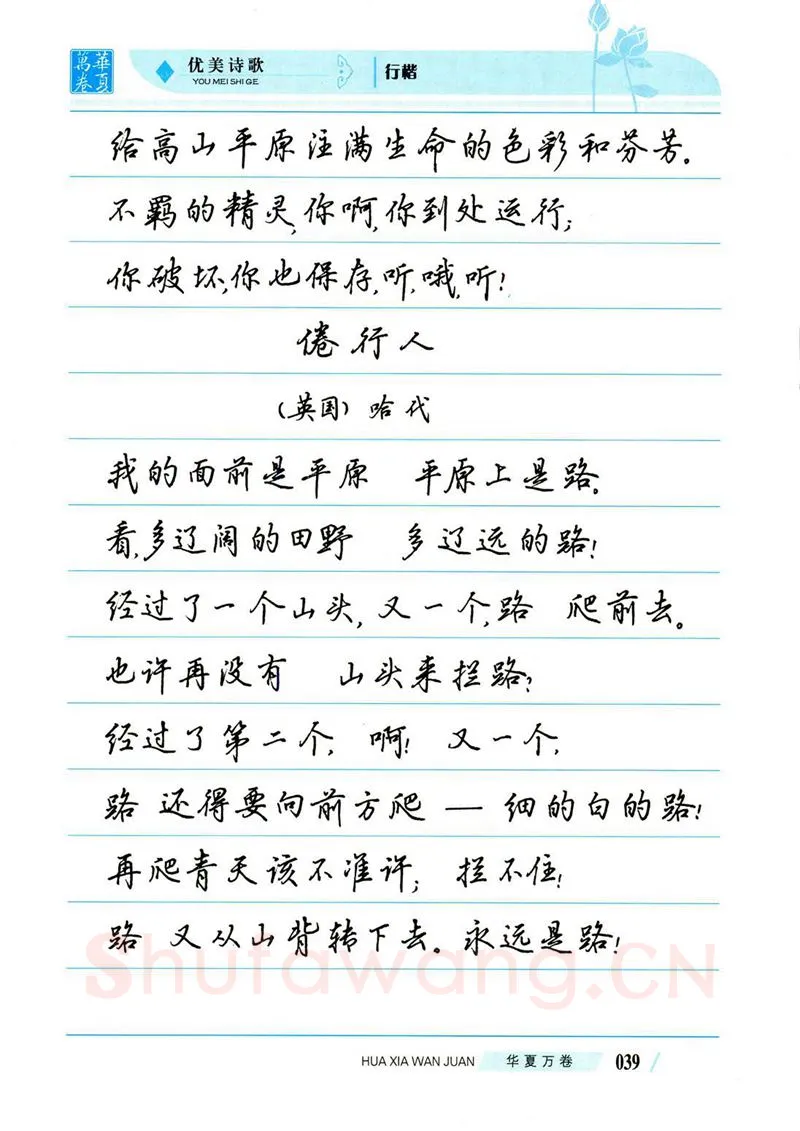 華夏
萬卷
优美诗歌
YOU MEI SHI GE
行楷
给高山平原注满生命的色彩和芬芳。
不羁的精灵,你啊,你到处运行;
你破坏,你也保存,听,哦,听!
倦行人
(英国) 哈代
我的面前是平原 平原上是路。
看,多辽阔的田野 多辽远的路!
经过了一个山头,又一个,路 爬前去。
也许再没有 山头来拦路?
经过了第二个, 啊! 又一个,
路 还得要向前方爬 — 细的白的路!
再爬青天该不准许; 拦不住!
路 又从山背转下去。永远是路!
Shufawang.CN
HUA XIA WAN JUAN
华夏万卷
039